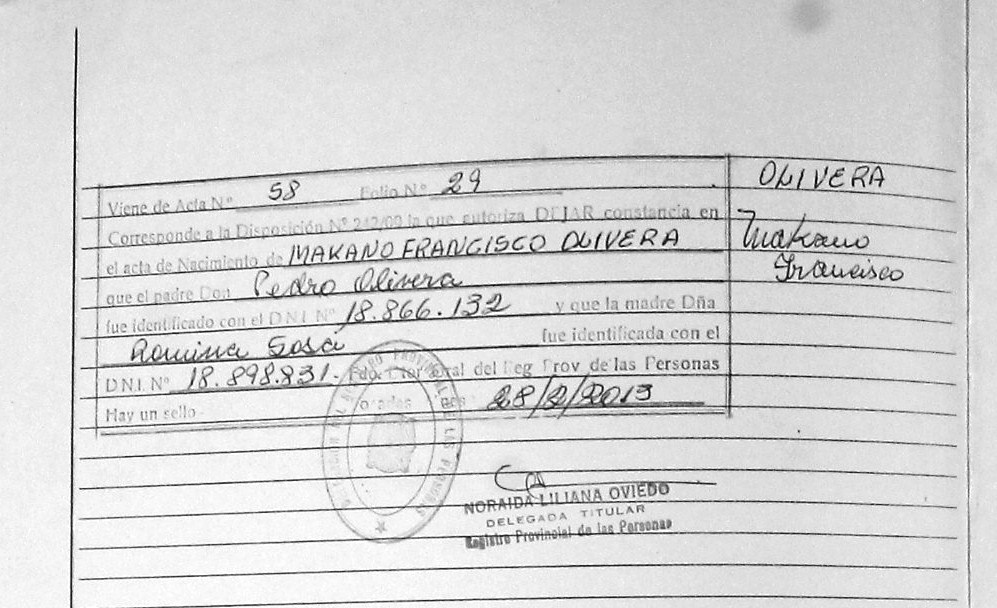 Viene de Acta Nº 58 Folio Nº 29
Corresponde a la Disposición Nº 242/00 la que autoriza DEJAR constancia en
el acta de Nacimiento de MAKANO FRANCISCO OLIVERA
que el padre Don Pedro Olivera
fue identificado con el D N I Nº 18.866.132 y que la madre Dña
Romina Sosa fue identificada con el
DN I. Nº 18.898.831. Fdo. Director Gral del Reg Prov de las Personas
Hay un sello 28/2/2013
OLIVERA
Makano
Francisco
NORAIDA LILIANA OVIEDO
DELEGADA TITULAR
Registro Provincial de las Personas